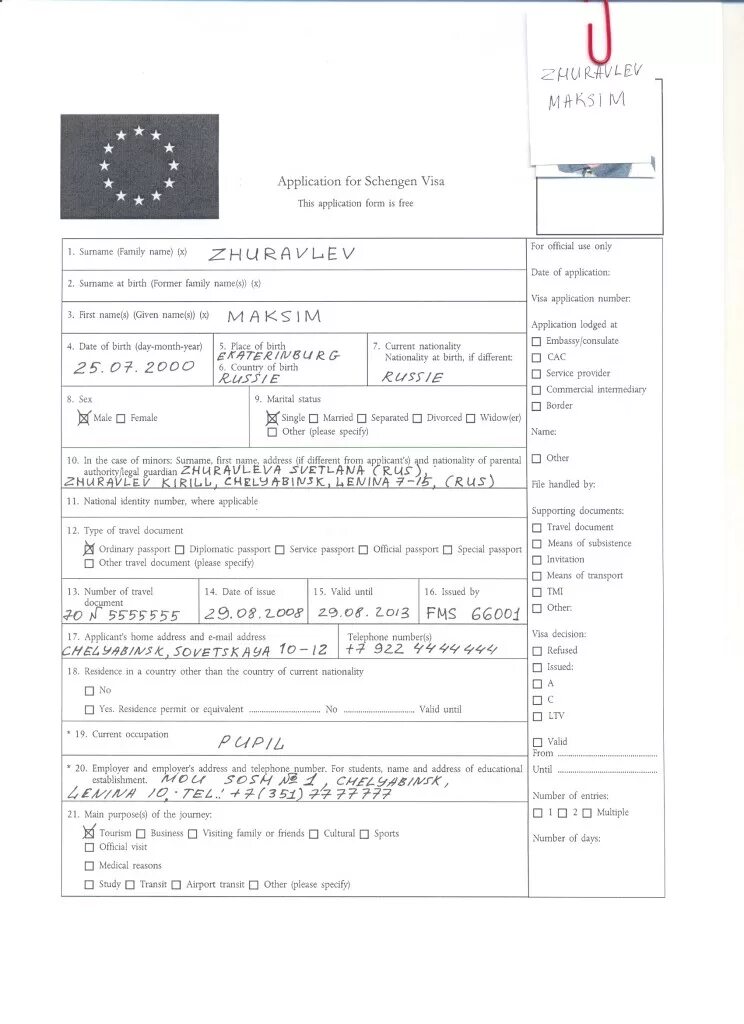 ZHURAVLEV
MAKSIM
Application for Schengen Visa
This application form is free
1. Surname (Family name) (x) ZHURAVLEV
2. Surname at birth (Former family name(s)) (x)
3. First name(s) (Given name(s)) (x) MAKSIM
4. Date of birth (day-month-year)
25.07.2000
5. Place of birth
EKATERINBURG
6. Country of birth
RUSSIE
7. Current nationality
Nationality at birth, if different:
RUSSIE
8. Sex
Male Female
9. Marital status
Single Married Separated Divorced Widow(er)
Other (please specify)
10. In the case of minors: Surname, first name, address (if different from applicant's) and nationality of parental
authority/legal guardian ZHURAVLEVA SVETLANA (RUS),
ZHURAVLEV KIRILL, CHELYABINSK, LENINA 7-15, (RUS)
11. National identity number, where applicable
12. Type of travel document
Ordinary passport Diplomatic passport Service passport Official passport Special passport
Other travel document (please specify)
13. Number of travel
document
70 N 5555555
14. Date of issue
29.08.2008
15. Valid until
29.08.2013
16. Issued by
FMS 66001
17. Applicant's home address and e-mail address
CHELYABINSK, SOVETSKAYA 10-12
Telephone number(s)
+7 922 4444444
18. Residence in a country other than the country of current nationality
No
Yes. Residence permit or equivalent .............................. No .................... Valid until
* 19. Current occupation
PUPIL
* 20. Employer and employer's address and telephone number. For students, name and address of educational
establishment. MOU SOSH № 1, CHELYABINSK,
LENINA 10. TEL.: +7(351)7777777
21. Main purpose(s) of the journey:
Tourism Business Visiting family or friends Cultural Sports
Official visit
Medical reasons
Study Transit Airport transit Other (please specify)
For official use only
Date of application:
Visa application number:
Application lodged at
Embassy/consulate
CAC
Service provider
Commercial intermediary
Border
Name:
Other
File handled by:
Supporting documents:
Travel document
Means of subsistence
Invitation
Means of transport
TMI
Other:
Visa decision:
Refused
Issued:
A
C
LTV
Valid
From ..............................
Until ..............................
Number of entries:
1 2 Multiple
Number of days: